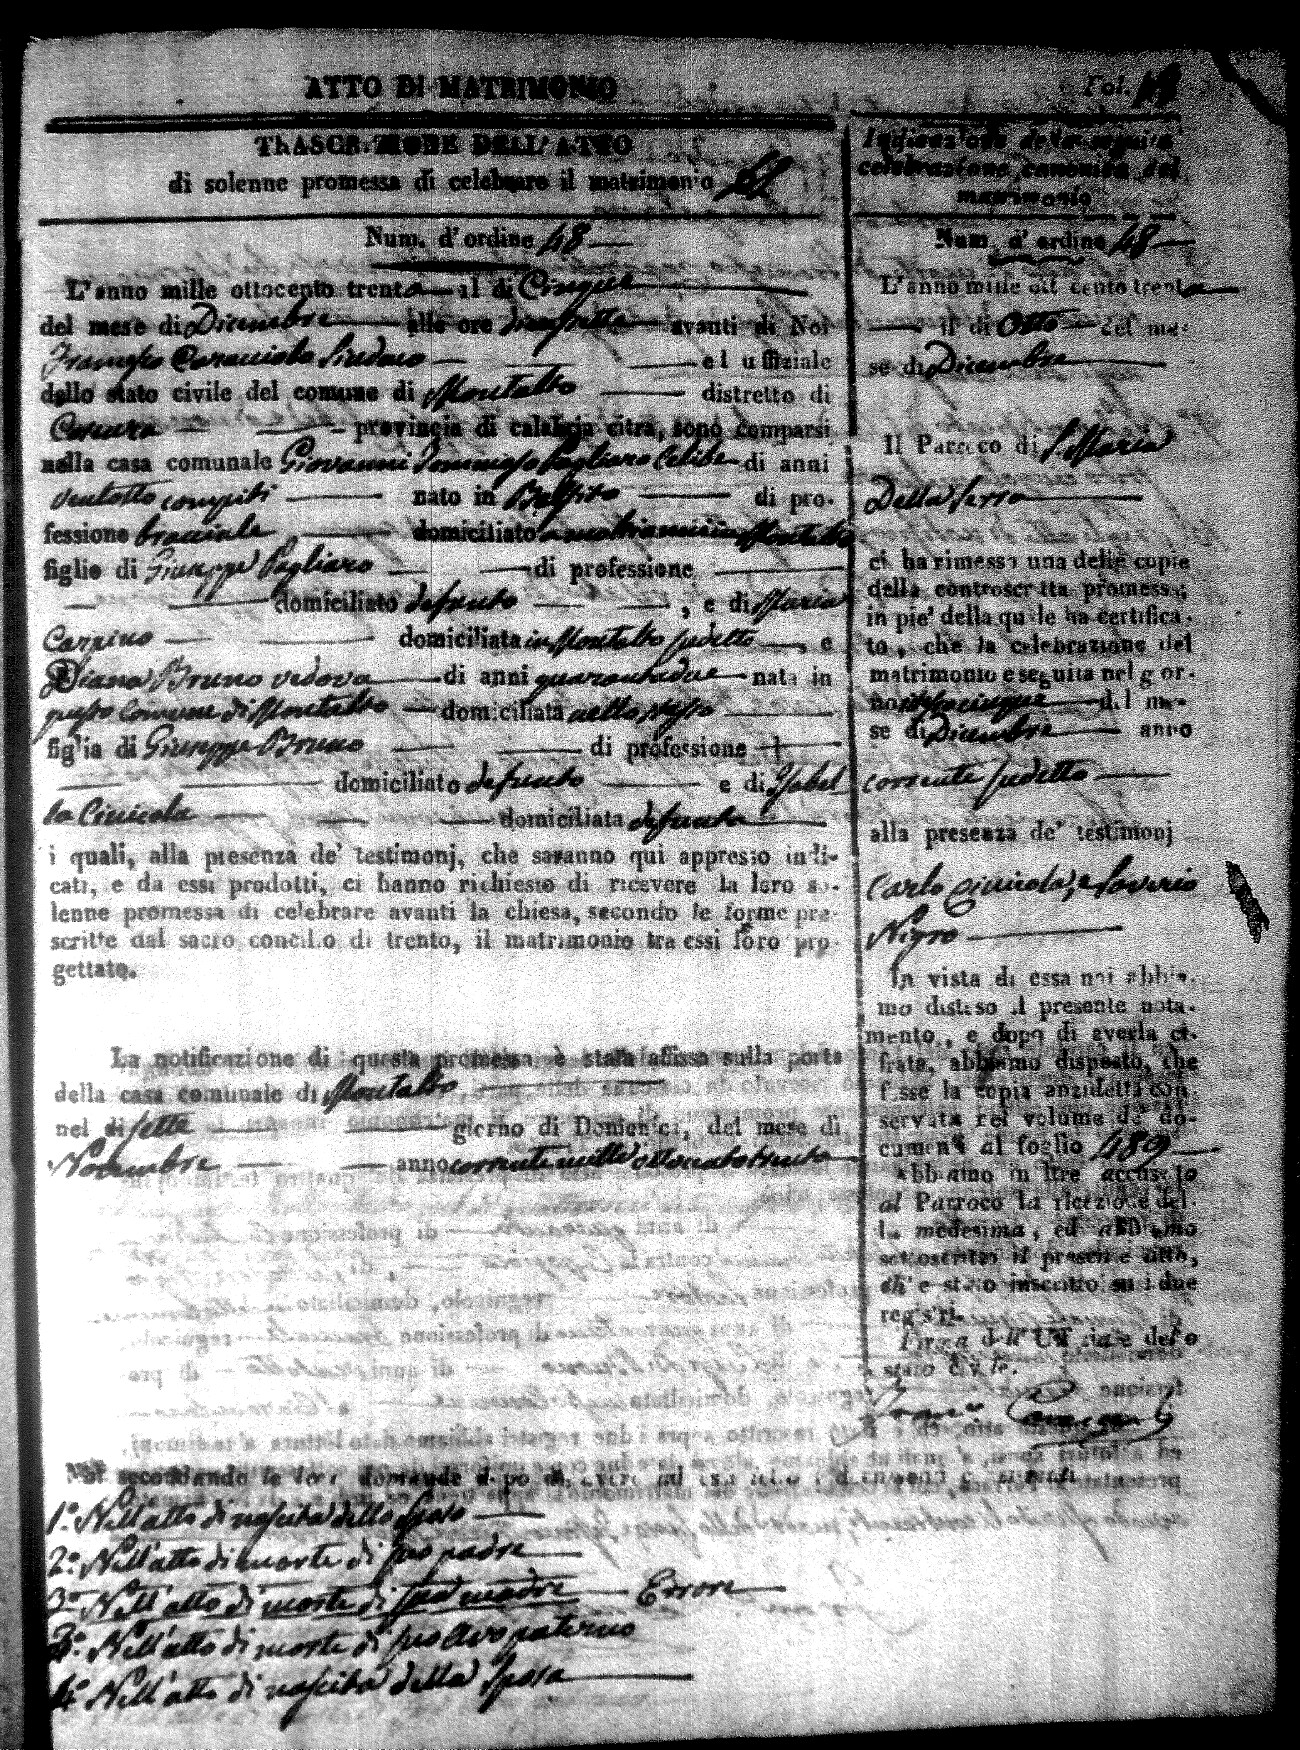 ATTO DI MATRIMONIO
Fol.
TRASCRIZIONE DELL'ATTO
di solenne promessa di celebrare il matrimonio
Num. d'ordine 48
L'anno mille ottocento trenta il dì Cinque
del mese di Dicembre alle ore avanti di Noi
Francesco Sindaco ed uffiziale
dello stato civile del comune di Montalto distretto di
Cosenza provincia di calabria citra, sono comparsi
nella casa comunale Giovanni Tommaso Pagliaro Celibe di anni
ventotto compiti nato in Belsito di pro-
fessione bracciale domiciliato Montalto
figlio di Giuseppe Pagliaro di professione
domiciliato defunto , e di Maria
Carpino domiciliata in Montalto sudetto , e
Diana Bruno vedova di anni quarantadue nata in
questo Comune di Montalto domiciliata nello stesso
figlia di Giuseppe Bruno di professione
domiciliato defunto e di Isabel
la Cinicola domiciliata defunta
i quali, alla presenza de' testimonj, che saranno qui appresso indi-
cati, e da essi prodotti, ci hanno richiesto di ricevere la loro so-
lenne promessa di celebrare avanti la chiesa, secondo le forme pre-
scritte dal sacro concilio di trento, il matrimonio tra essi loro pro-
gettato.
La notificazione di questa promessa è stata affissa sulla porta
della casa comunale di Montalto
nel dì sette giorno di Domenica, del mese di
Novembre anno corrente mille ottocento trenta
Noi secondando le loro domande dopo di avere
1.° Nell'atto di nascita dello Sposo
2.° Nell'atto di morte di suo padre
3.° Nell'atto di morte di sua madre Errore
3.° Nell'atto di morte di suo Avo paterno
4.° Nell'atto di nascita della Sposa
Indicazione della seguita
celebrazione canonica del
matrimonio
Num. d'ordine 48
L'anno mille ottocento trenta
il dì Otto del me-
se di Dicembre
Il Parroco di S. Maria
Della Serra
ci ha rimessa una delle copie
della controscritta promessa;
in piè della quale ha certifica-
to, che la celebrazione del
matrimonio è seguita nel gior-
no cinque del me-
se di Dicembre anno
corrente sudetto
alla presenza de' testimonj
Carlo Cinicola, e Saverio
Nigro
In vista di essa noi abbia-
mo disteso il presente nota-
mento, e dopo di averla ci-
frata, abbiamo disposto, che
fosse la copia anzidetta con-
servata nel volume de' do-
cumenti al foglio 489
Abbiamo in oltre accusato
al Parroco la ricezione del-
la medesima, ed abbiamo
sottoscritto il presente atto,
ch'è stato inscritto su i due
registri.
Firma dell'Uffiziale dello
stato Civile.